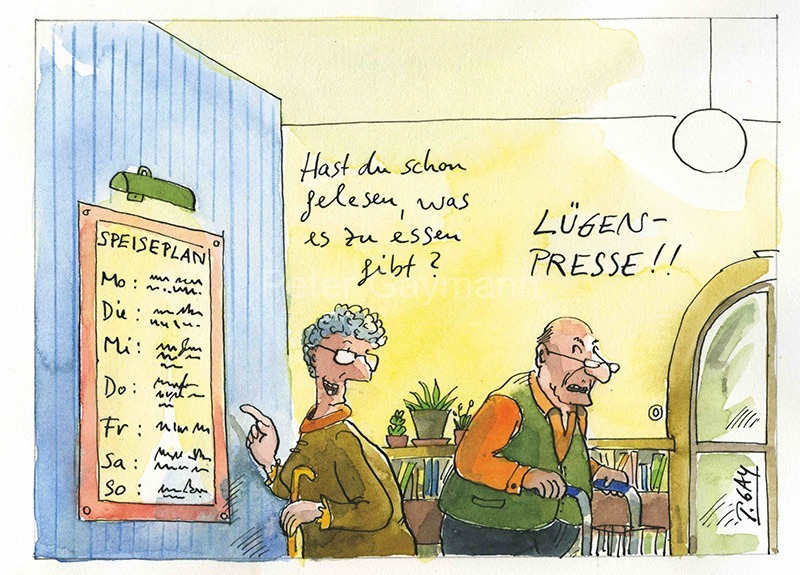 SPEISEPLAN
Mo:
Die:
Mi:
Do:
Fr:
Sa:
So:
Hast du schon
gelesen, was
es zu essen
gibt?
LÜGEN-
PRESSE!!
Peter Gaymann
P. GAY